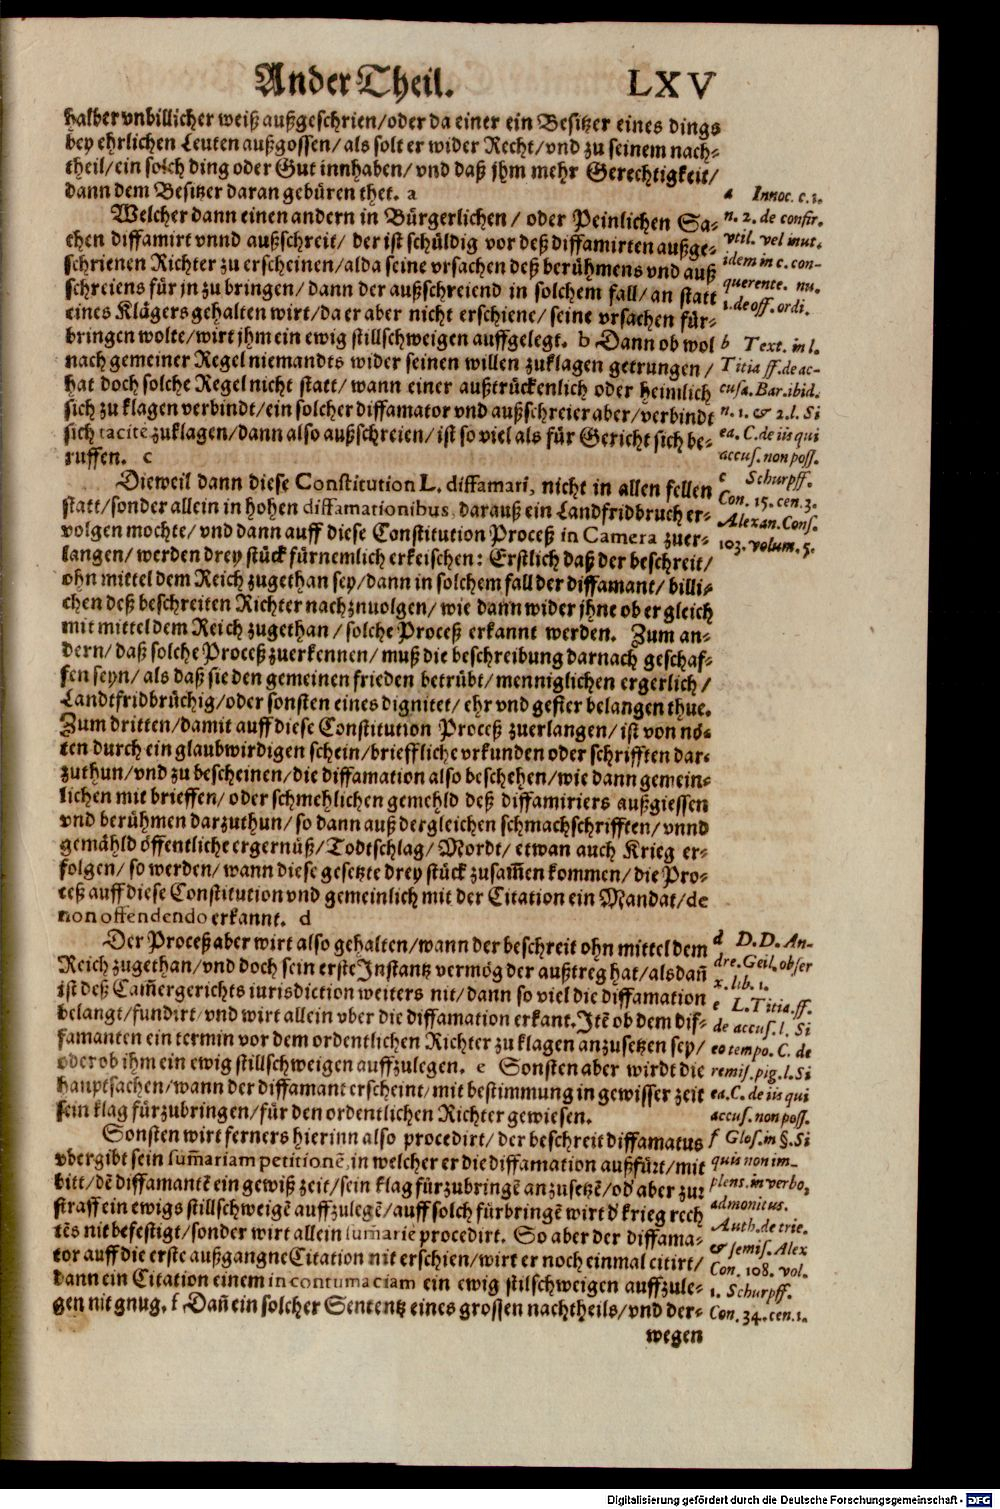 Ander Theil. LXV
halber vnbillicher weiß außgeschrien/oder da einer ein Besitzer eines dings
bey ehrlichen Leuten außgossen/als solt er wider Recht/vnd zu seinem nach-
theil/ein solch ding oder Gut innhaben/vnd daß jhm mehr Gerechtigkeit/
dann dem Besitzer daran gebüren thet. a
Welcher dann einen andern in Bürgerlichen/oder Peinlichen Sa-
chen diffamirt vnnd außschreit/der ist schüldig vor deß diffamirten außge-
schrienen Richter zu erscheinen/alda seine vrsachen deß berühmens vnd auß
schreiens für jn zu bringen/dann der außschreiend in solchem fall/an statt
eines Klägers gehalten wirt/da er aber nicht erschiene/seine vrsachen für-
bringen wolte/wirt jhm ein ewig stillschweigen auffgelegt. b Dann ob wol
nach gemeiner Regel niemandts wider seinen willen zuklagen getrungen/
hat doch solche Regel nicht statt/wann einer außtrückenlich oder heimlich
sich zu klagen verbindt/ein solcher diffamator vnd außschreier aber/verbindt
sich tacitè zuklagen/dann also außschreien/ist so viel als für Gericht sich be-
ruffen. c
Dieweil dann diese Constitution L. diffamari, nicht in allen fellen
statt/sonder allein in hohen diffamationibus, darauß ein Landfridbruch er-
volgen mochte/vnd dann auff diese Constitution Proceß in Camera zuer-
langen/werden drey stück fürnemlich erkeischen: Erstlich daß der beschreit/
ohn mittel dem Reich zugethan sey/dann in solchem fall der diffamant/billi-
chen deß beschreiten Richter nachznuolgen/wie dann wider jhne ob er gleich
mit mittel dem Reich zugethan/solche Proceß erkannt werden. Zum an-
dern/daß solche Proceß zuerkennen/muß die beschreibung darnach geschaf-
fen seyn/als daß sie den gemeinen frieden betrübt/menniglichen ergerlich/
Landtfridbrüchig/oder sonsten eines dignitet/ehr vnd gester belangen thue.
Zum dritten/damit auff diese Constitution Proceß zuerlangen/ist von nö-
ten durch ein glaubwirdigen schein/brieffliche vrkunden oder schrifften dar-
zuthun/vnd zu bescheinen/die diffamation also beschehen/wie dann gemein-
lichen mit brieffen/oder schmehlichen gemehld deß diffamiriers außgiessen
vnd berühmen darzuthun/so dann auß dergleichen schmachschrifften/vnnd
gemähld öffentliche ergernüß/Todtschlag/Mordt/etwan auch Krieg er-
folgen/so werden/wann diese gesetzte drey stück zusam̃en kommen/die Pro-
ceß auff diese Constitution vnd gemeinlich mit der Citation ein Mandat/de
non offendendo erkannt. d
Der Proceß aber wirt also gehalten/wann der beschreit ohn mittel dem
Reich zugethan/vnd doch sein erste Instantz vermög der außtreg hat/als dañ
ist deß Cam̃ergerichts iurisdiction weiters nit/dann so viel die diffamation
belangt/fundirt/vnd wirt allein vber die diffamation erkant. Itẽ ob dem dif-
famanten ein termin vor dem ordentlichen Richter zu klagen anzusetzen sey/
oder ob ihm ein ewig stillschweigen auffzulegen. e Sonsten aber wirdt die
hauptsachen/wann der diffamant erscheint/mit bestimmung in gewisser zeit
sein klag fürzubringen/für den ordentlichen Richter gewiesen.
Sonsten wirt ferners hierinn also procedirt/der beschreit diffamatus
vbergibt sein sum̃ariam petitionẽ, in welcher er die diffamation außfürt/mit
bitt/dẽ diffamantẽ ein gewiß zeit/sein klag fürzubringẽ anzusetzẽ/oď aber zur
straff ein ewigs stillschweigẽ auffzulegẽ/auff solch fürbringẽ wirt ď krieg rech
tẽs nit befestigt/sonder wirt allein sumariè procedirt. So aber der diffama-
tor auff die erste außgangne Citation nit erschien/wirt er noch einmal citirt/
dann ein Citation einem in contumaciam ein ewig stilschweigen auffzule-
gen nit gnug. f Dañ ein solcher Sententz eines grossen nachtheils/vnd der-
wegen
a Innoc. c. 1.
n. 2. de confir.
vtil. vel inut.
idem in c. con-
querente. nu.
1. de off. ordi.
b Text. in l.
Titia ff. de ac-
cusa. Bar. ibid.
n. 1. & 2. l. Si
ea. C. de iis qui
accus. non poss.
c Schurpff.
Con. 15. cen. 3.
Alexan. Cons.
103. volum. 5.
d D.D. An-
dre. Geil. obser
x. lib. 1.
e L. Titia. ff.
de accus. l. Si
eo tempo. C. de
remis. pig. l. Si
ea. C. de iis qui
accus. non poss.
f Glos. in §. Si
quis non im-
plens. in verbo,
admonitus.
Auth. de trie.
& semis. Alex
Con. 108. vol.
1. Schurpff.
Con. 34. cen. 1.
Digitalisierung gefördert durch die Deutsche Forschungsgemeinschaft - DFG